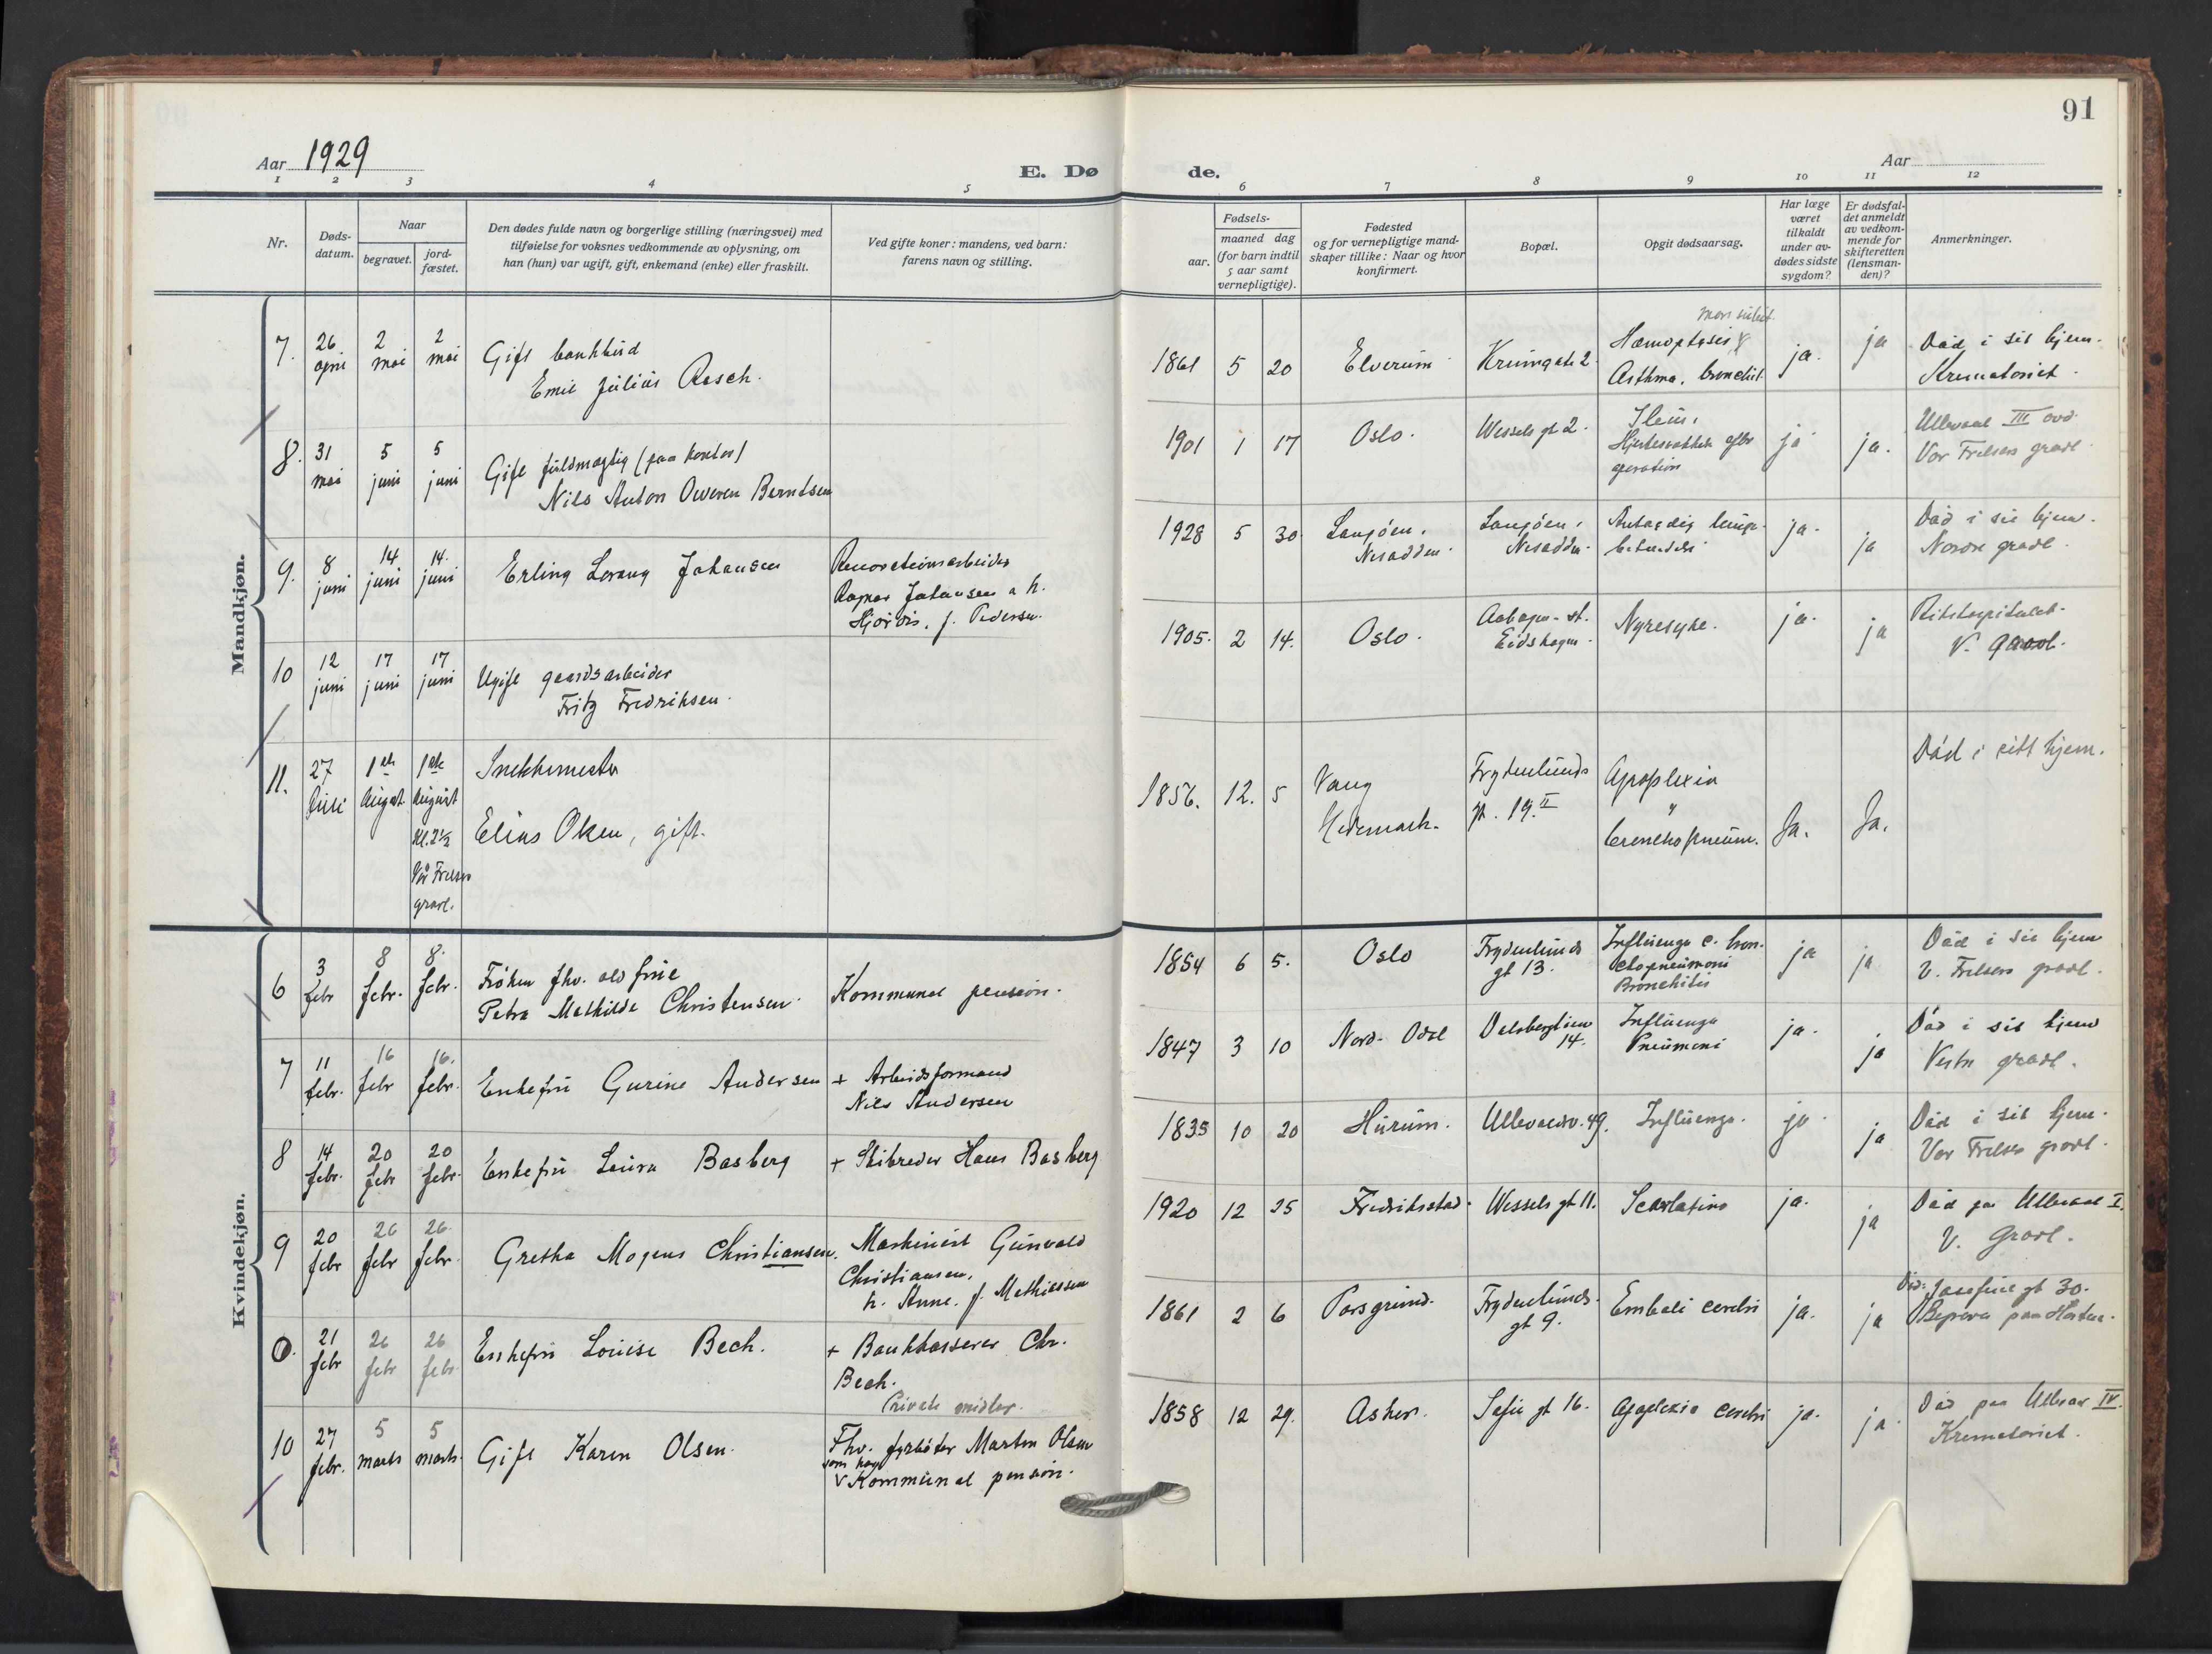 91
Aar 1929
E. Dø
de.
Aar
1 2 3 4 5
6 7 8 9 10 11 12
Nr.
Døds-
datum.
Naar
begravet.
jord-
fæstet.
Den dødes fulde navn og borgerlige stilling (næringsvei) med
tilføielse for voksnes vedkommende av oplysning, om
han (hun) var ugift, gift, enkemand (enke) eller fraskilt.
Ved gifte koner: mandens, ved barn:
farens navn og stilling.
Fødsels-
aar.
maaned dag
(for barn indtil
5 aar samt
vernepligtige).
Fødested
og for vernepligtige mand-
skaper tillike: Naar og hvor
konfirmert.
Bopæl.
Opgit dødsaarsag.
Har læge
været
tilkaldt
under av-
dødes sidste
sygdom?
Er dødsfal-
det anmeldt
av vedkom-
mende for
skifteretten
(lensman-
den)?
Anmerkninger.
Mandkjøn.
7. 26 2 2 Gift
mai mai
Emil Julius
1861 5 20 Elverum 2.
Hæmoptysis
Asthma, bronchit.
ja. ja
Død i sit hjem.
Krematoriet.
8. 31 5 5
mai juni juni Gift fuldmægtig (paa kontor)
Nils Anton Berntsen
1901 1 17 Oslo. Wessels gt 2.
Ileus,
operation
ja ja.
Ullevaal III avd.
Vor Frelsers gravl.
9. 8 14 14.
juni juni juni Erling Johansen
Renovationsarbeider
Ragnar Johansen a h.
f. Pedersen.
1928 5 30
Nesodden.
Nesodden.
ja. ja
Død i sit hjem.
Nordre gravl.
10 12 17 17
juni juni juni Ugift gaardsarbeider
Fritz Fredriksen.
1905. 2 14. Oslo.
Eidskogen.
Nyresyke. ja. ja
Rikshospitalet.
V. gravl.
11. 27 1ste 1ste Snekkermester
Juli August August
Kl. 2½
Vår Frelsers
gravl.
Elias Olsen, gift.
1856. 12. 5 Vang
Hedemark.
Frydenlunds
gt. 19. II
Apoplexia
bronchopneum. Ja. Ja.
Død i sitt hjem.
Kvindekjøn.
6 3 8 8.
febr febr. febr. Frøken fhv. oldfrue
Petra Mathilde Christensen.
Kommunal pension.
1854 6 5. Oslo
Frydenlunds
gt 13.
Influenza c. bron-
chopneumoni
Bronchitis
ja ja
Død i sit hjem
V. Frelsers gravl.
7 11 16 16.
febr. febr febr. Enkefru Gurine Andersen
+ Arbeidsformand
Nils Andersen
1847 3 10 Nord-Odal
Dalsbergstien
14.
Influenza
Pneumoni
ja. ja
Død i sit hjem
Vestre gravl.
8 14 20 20
febr. febr febr. Enkefru Laura Basberg
+ Skibsreder Hans Basberg
1835 10 20 Hurum. Ullevaalsv. 49. Influenza. ja ja
Død i sit hjem.
Vor Frelsers gravl.
9 20 26 26.
febr febr febr. Grethe Mogens Christiansen.
Maskinist Gunvald
Christiansen,
h. Anne. f. Mathiassen
1920 12 25 Fredrikstad. Wessels gt 11. Scarlatina ja. ja
Død paa Ullevaal I.
V. Gravl.
0. 21 26 26
febr febr febr Enkefru Louise Bech.
+ Bankkasserer Chr.
Bech.
Private midler.
1861 2 6 Porsgrund.
Frydenlunds-
gt 9.
Emboli cerebri ja. ja
Død: Josefine gt 30.
10 27 5 5
febr. marts marts. Gift Karen Olsen.
Fhv. fyrbøter Martin Olsen
som har
v Kommunal pension.
1858 12 29. Asker. Sofie gt 16. Apoplexia cerebri ja. ja.
Død paa Ullevaal IV.
Krematoriet.